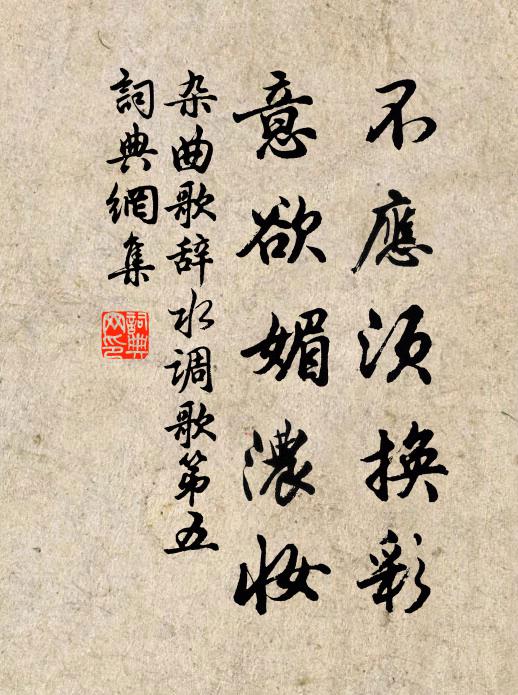 不應須換彩
意欲媚濃妝
杂曲歌辞水调歌第五
詞典網集
詞典
网印